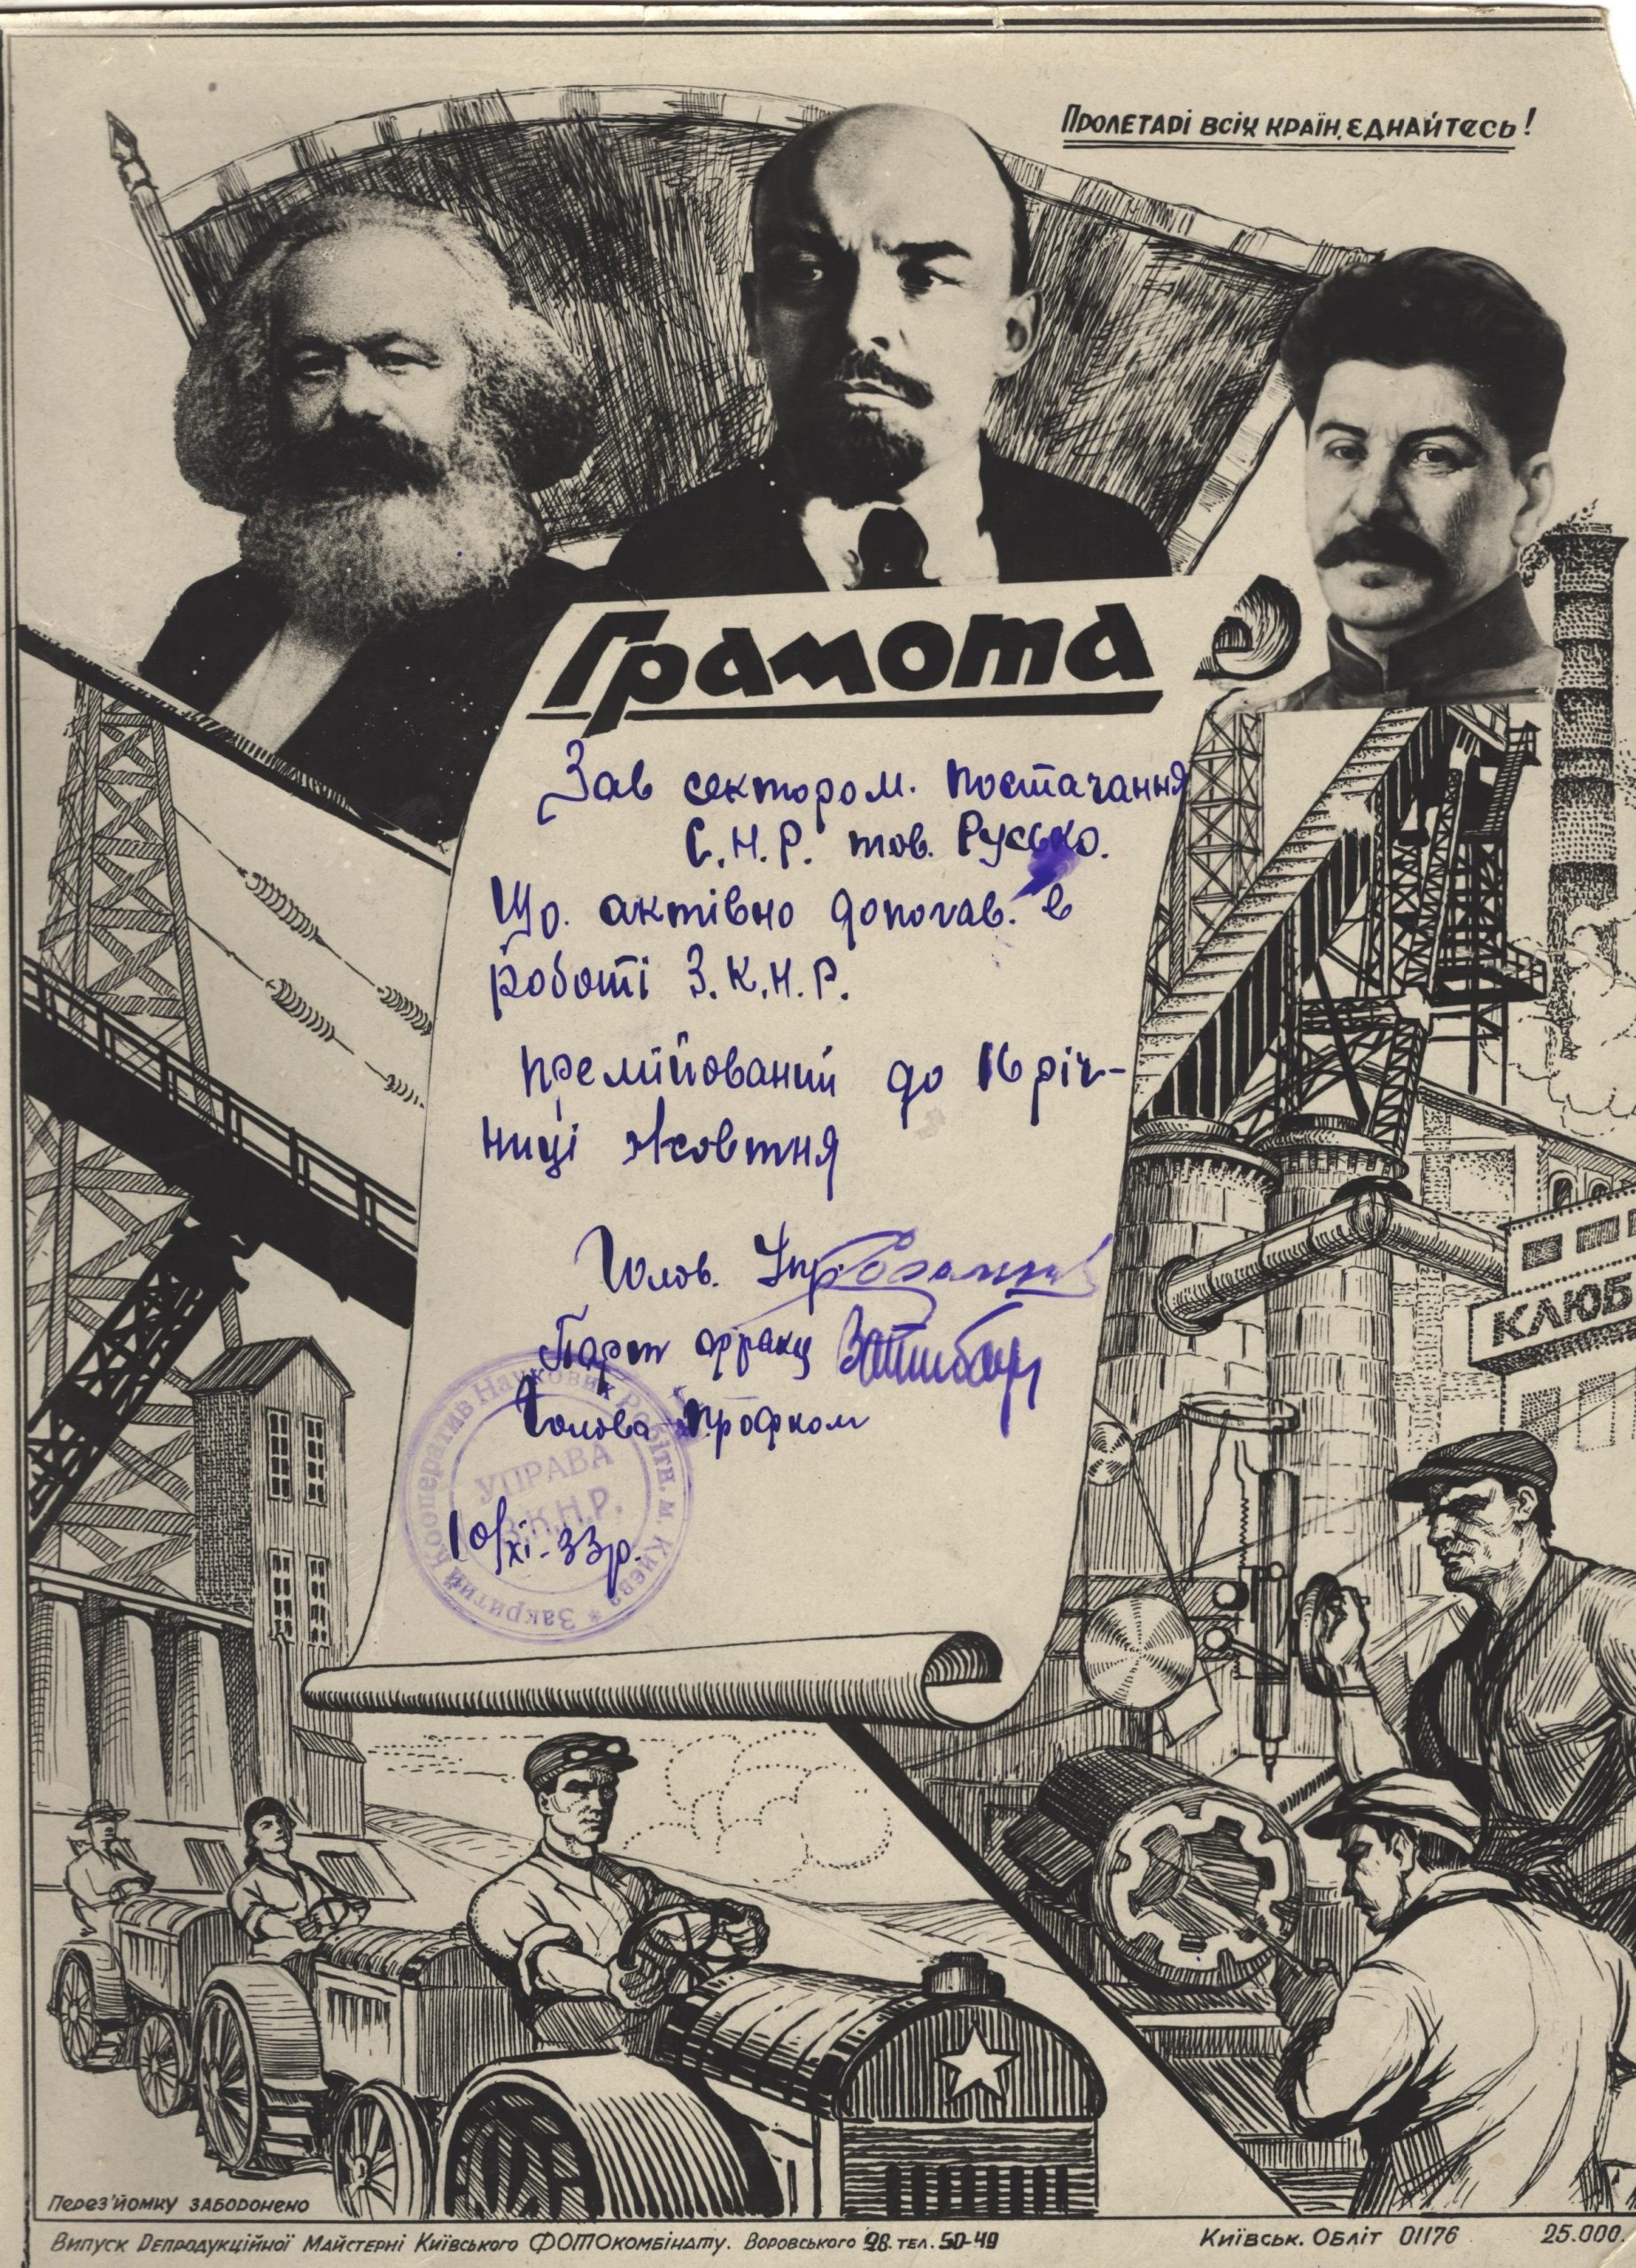 Пролетарі всіх країн, єднайтесь!
Грамота
Зав сектором. постачання
С.Н.Р. тов. Русько.
Що. активно допогав. в
роботі З.К.Н.Р.
премійований до 16 річ-
ниці жовтня
Голов. Упр
Парт фракц
Голова Профком
10/XI-33р.
Закритий Кооператив Наукових Робітн. м. Києва *
УПРАВА
З.К.Н.Р.
КЛЮБ
Перез'йомку заборонено
Випуск Репродукційної Майстерні Київського ФОТОкомбінату. Воровського 28. тел. 50-49
Київськ. Обліт 01176 25.000.